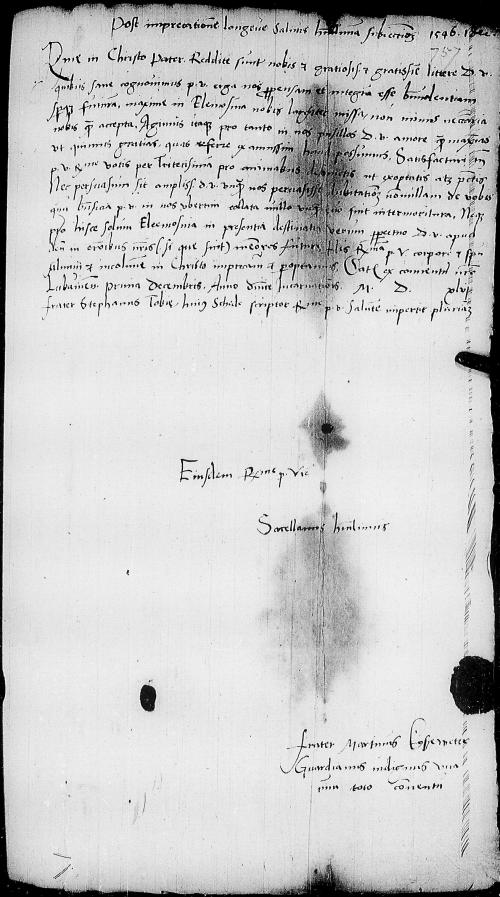 Post imprecationē longeue Salutis humillimā subiectionē 1546. 1 Dec
757
Dne in Christo Pater. Reddite sunt nobis & gratiosiss & gratissīe littere D. v.
quibus sane cognovimus p. v. erga nos propensam et integrā esse benivolentiam
futura, maxime in Elemosina nobis largiter missa non minus necc̄aria
nobis q̄ accepta. Agimus itaq pro tanto in nos pusillos D. v. amore q̄ maximas
ut quimus gratias, quas referre examussim haud possimus. Satisfacturi tn̄
p. v. Rme votis per Tricesimā pro animabus ut exoptatis atq petitis
Nec persuasum sit ampliss. d. v. unq̄ nos persuasisse dubitationē nonullam de vobis
quin p. v. in nos ubertim colata nullo unq̄ sint intermoritura. Neq
pro hisce solum Eleemosina in presentia destinatis verum perpetuo D. v. apud
deū in oroībus nr̄is (si que sunt) memores futuri. His Rmā p v corpore & spū
& incolumē in Christo imprecamur & poptamus Dat ex conventu nr̄o
Lubaincn. Prima Decembris. Anno dn̄ice Incarnatiōis. M. D. xlvj
frater Stephanus huius Schāle scriptor Rme p. v. Salutē impertit plurimā
Eiusdem Rme p. Vre
Sacellanus humillimus
frater Martinus
Guardianus indignus una
cum toto conventu